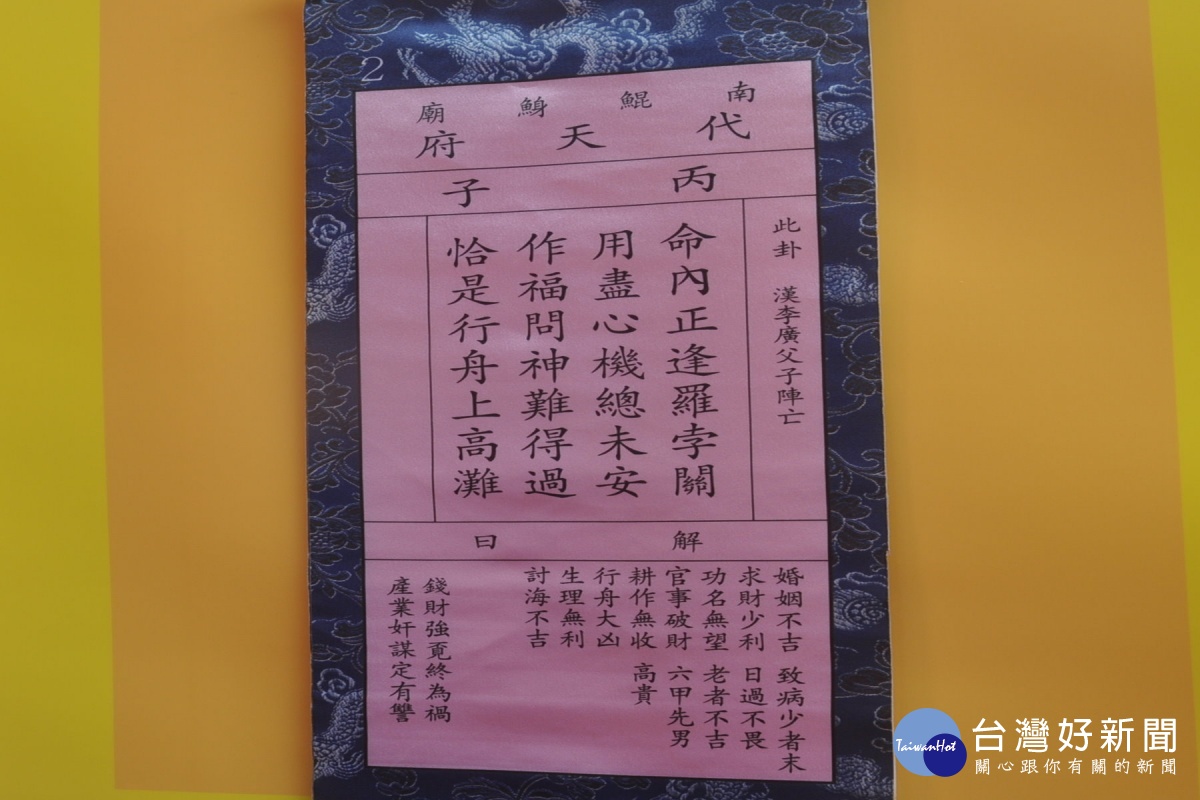 2
南鯤鯓廟
代天府
丙子
此卦 漢李廣父子陣亡
命內正逢羅孛關
用盡心機總未安
作福問神難得過
恰是行舟上高灘
解曰
婚姻不吉 致病少者末
求財少利 日過不畏
功名無望 老者不吉
官事破財 六甲先男
耕作無收 高貴
行舟大凶
生理無利
討海不吉
錢財強覔終為禍
產業奸謀定有讐
TaiwanHot
台灣好新聞
關心跟你有關的新聞